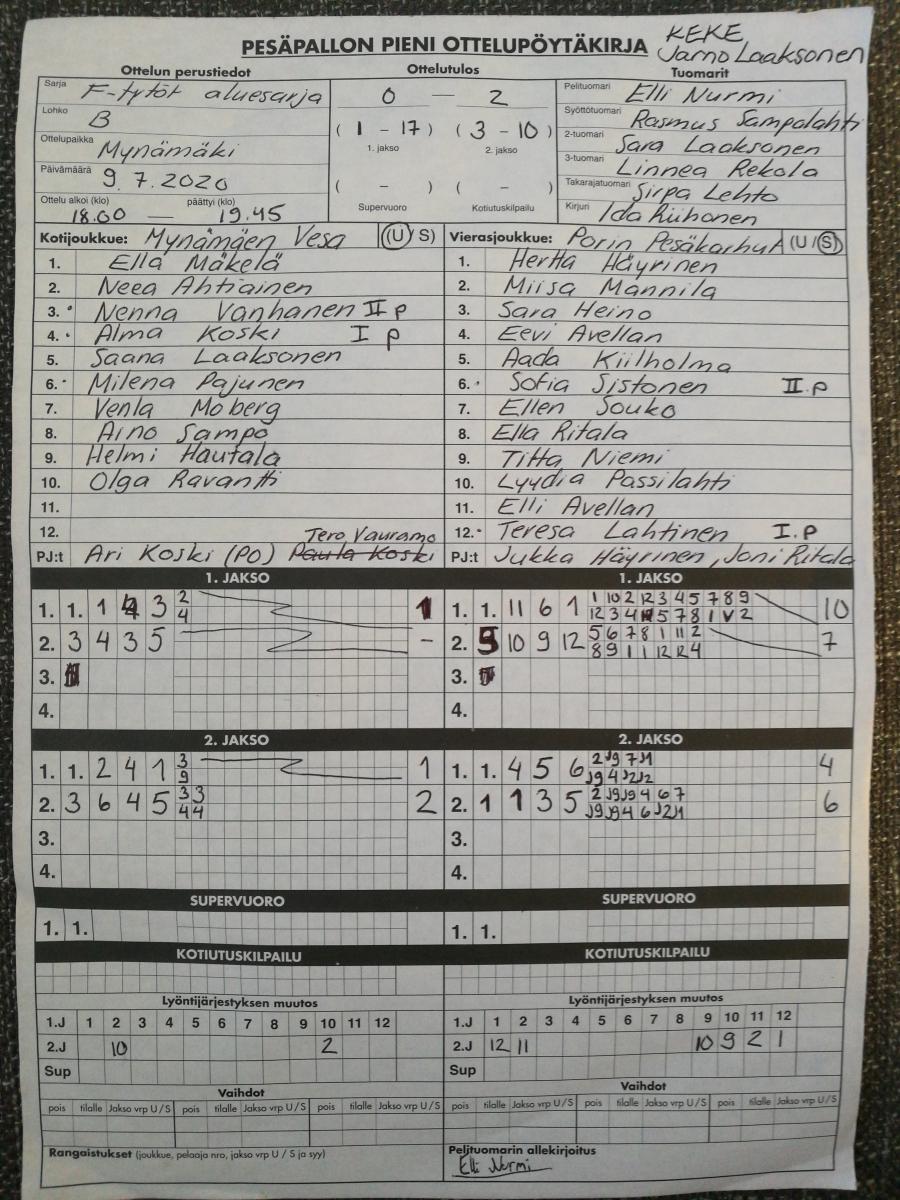 KEKE
PESÄPALLON PIENI OTTELUPÖYTÄKIRJA Jarno Laaksonen
Ottelun perustiedot Ottelutulos Tuomarit
Sarja F-tytöt aluesarja 0 — 2 Pelituomari Elli Nurmi
Lohko B Syöttötuomari Rasmus Sampalahti
(1 - 17) (3 - 10)
1. jakso 2. jakso
Ottelupaikka Mynämäki 2-tuomari Sara Laaksonen
Päivämäärä 9.7.2020 3-tuomari Linnea Rekola
( - ) ( - ) Takarajatuomari Sirpa Lehto
Ottelu alkoi (klo) päättyi (klo)
18.00 — 19.45 Supervuoro Kotiutuskilpailu Kirjuri Ida Riihonen
Kotijoukkue: Mynämäen Vesa (U/S) Vierasjoukkue: Porin Pesäkarhut (U/S)
1. Ella Mäkelä 1. Hertta Häyrinen
2. Neea Ahtiainen 2. Miisa Mannila
3. Nenna Vanhanen II p 3. Sara Heino
4. Alma Koski I p 4. Eevi Avellan
5. Saana Laaksonen 5. Aada Kiilholma
6. Milena Pajunen 6. Sofia Sistonen II.p
7. Venla Moberg 7. Ellen Souko
8. Aino Sampo 8. Ella Ritala
9. Helmi Hautala 9. Titta Niemi
10. Olga Ravantti 10. Lyydia Passilahti
11. 11. Elli Avellan
12. 12. Teresa Lahtinen I.p
Tero Vauramo
PJ:t Ari Koski (PO) Paula Koski PJ:t Jukka Häyrinen, Joni Ritala
1. JAKSO 1. JAKSO
1. 1. 1 3 2 4 1 1. 1. 11 6 1 1 10 2 12 3 4 5 7 8 9 10
12 3 4 5 7 8 1 2
2. 3 4 3 5 - 2. 9 10 9 12 5 6 7 8 1 11 2 7
8 9 1 1 12 12 4
3. 3.
4. 4.
2. JAKSO 2. JAKSO
1. 1. 2 4 1 3 9 1 1. 1. 4 5 6 4
2. 3 6 4 5 33 44 2 2. 1 1 3 5 6
3. 3.
4. 4.
SUPERVUORO SUPERVUORO
1. 1. 1. 1.
KOTIUTUSKILPAILU KOTIUTUSKILPAILU
Lyöntijärjestyksen muutos Lyöntijärjestyksen muutos
1.J 1 2 3 4 5 6 7 8 9 10 11 12 1.J 1 2 3 4 5 6 7 8 9 10 11 12
2.J 10 2 2.J 12 11 10 9 2 1
Sup Sup
Vaihdot Vaihdot
pois tilalle Jakso vrp U/S pois tilalle Jakso vrp U/S pois tilalle Jakso vrp U/S pois tilalle Jakso vrp U/S pois tilalle Jakso vrp U/S pois tilalle Jakso vrp U/S
Rangaistukset (joukkue, pelaaja nro, jakso vrp U / S ja syy) Pelituomarin allekirjoitus
Elli Nurmi